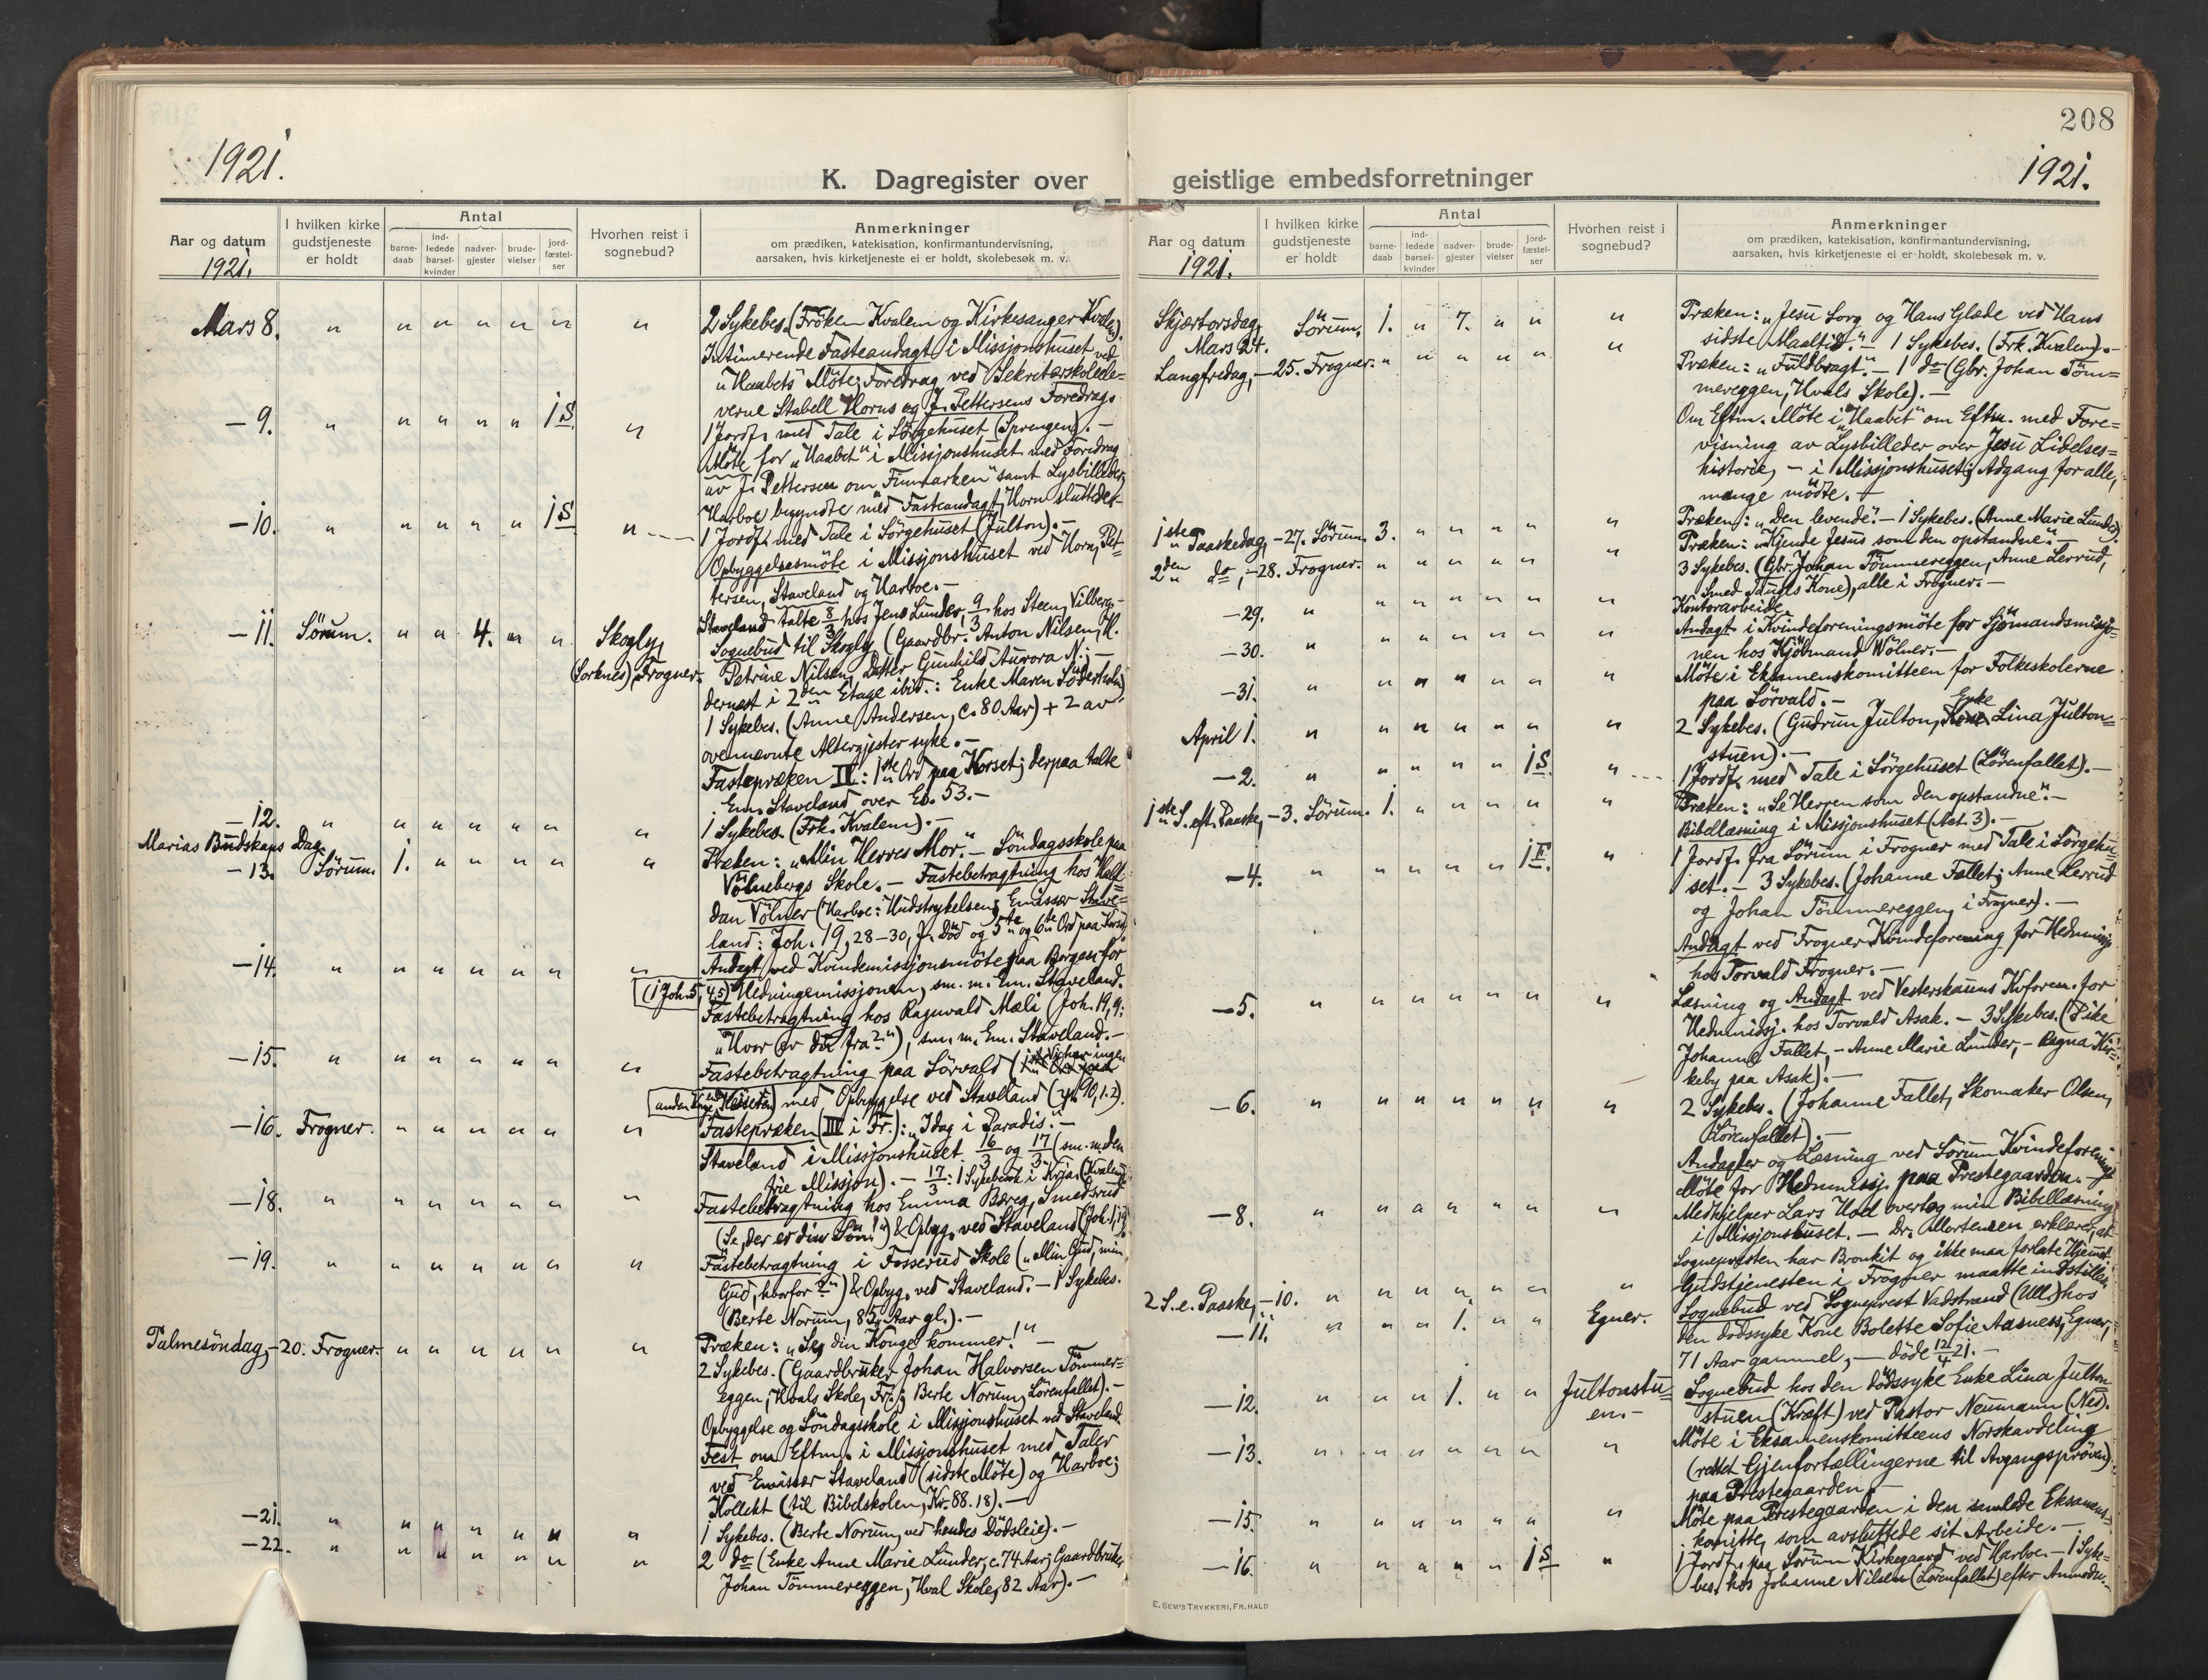 208
1921.
1921.
K. Dagregister over geistlige embedsforretninger
Aar og datum
1921.
I hvilken kirke gudstjeneste er holdt
Antal
barne-daab
ind-ledede barsel-kvinder
nadver-gjester
brude-vielser
jord-fæstel-ser
Hvorhen reist i sognebud?
Anmerkninger
om prædiken, katekisation, konfirmantundervisning,
aarsaken, hvis kirketjeneste ei er holdt, skolebesøk m. v.
Mars 8. " " " " " " " 2 Sykebes. (Fröken Kvalem og Kirkesanger Kvalem).
Intimerende Fasteandagt i Missjonshuset ved
"Haabets" Möte; Foredrag ved Sekretærskolele=
verne Stabell Horns og J. Pettersens Foredrag.
— 9. " " " " " 1 S. " 1 Jordf. med Tale i Sörgehuset (Sprengen). —
Möte for "Haabet" i Missjonshuset med Foredrag
av J. Pettersen om Finmarken samt Lysbilleder;
Harboe begyndte med Fasteandagt, Horn sluttede. —
— 10. " " " " " 1 S. " 1 Jordf. med Tale i Sörgehuset (Julton). —
Opbyggelsesmöte i Missjonshuset ved Horn, Pet=
tersen, Staveland og Harboe. —
Staveland talte 8/3 hos Jens Lunder, 9/3 hos Steen, Vilberg. —
— 11. Sörum. " " 4. " " Skogly, Sognebud til Skogly (Gaardbr. Anton Nilsen, H.
(Sorknes), Frogner. Petrine Nilsen, Datter Gunhild Aurora N.; —
dernæst i 2den Etage ibid.: Enke Maren Söderholm)
1 Sykebes. (Anne Andersen, c. 80 Aar) + 2 av
ovennevnte Altergjester syke. —
Fastepræken IV: 1ste Ord paa Korset; derpaa talte
Em. Staveland over Es. 53. —
— 12. " " " " " " " 1 Sykebes. (Frk. Kvalem). —
Marias Budskaps Dag
— 13. Sörum. 1. " " " " " Præken: "Min Herres Mor." — Söndagsskole paa
Völnebergs Skole. — Fastebetragtning hos Half=
dan Völner (Harboe: Hudstrykelsen; Emissær Stave=
land: Joh. 19, 28—30, J. Död og 5te og 6te Ord paa Korset)
— 14. " " " " " " " Andagt ved Kvindemissjonsmöte paa Borgen for
(1 Joh. 5, 4.5) Hedningemissjonen, sm. m. Em. Staveland.
Fastebetragtning hos Ragnvald Mæli (Joh. 19, 9:
"Hvor er du fra?"), sm. m. Em. Staveland. —
— 15. " " " " " " " Fastebetragtning paa Sörvald (
med Opbyggelse ved Staveland
— 16. Frogner. " " " " " " Fastepræken (III i Fr.): "Idag i Paradis." —
Staveland i Missjonshuset 16/3 og 17/3 (sm. m. den
frie Missjon). — 17/3: 1 Sykebesök i Krjar (Kvalem)
— 18. " " " " " " " Fastebetragtning hos Emma Bæreg, Smedsrud
(Se, der er din Sön!) & Opbyg. ved Staveland
— 19. " " " " " " " Fastebetragtning i Fosserud Skole ("Min Gud, min
Gud, hvorfor?") & Opbyg. ved Staveland. — 1 Sykebes.
(Berte Norum, 85 Aar gl.). —
Palmesöndag, — 20. Frogner. " " " " " " Præken: "Se, din Konge kommer!" —
2 Sykebes. (Gaardbruker Johan Halvorsen Tömmer=
eggen, Hvals Skole, Fr.; Berte Norum, Lörenfallet). —
Opbyggelse og Söndagsskole i Missjonshuset ved Staveland
Fest om Eftm. i Missjonshuset med Taler
ved Emissær Staveland (sidste Möte) og Harboe;
Kollekt (til Bibelskolen, Kr. 88.18). —
— 21. " " " " " " " 1 Sykebes. (Berte Norum, ved hendes Dödsleie). —
— 22. " " " " " " " 2 do (Enke Anne Marie Lunder, c. 74 Aar; Gaardbruker
Johan Tömmereggen, Hval Skole, 82 Aar). —
Aar og datum
1921.
I hvilken kirke gudstjeneste er holdt
Antal
barne-daab
ind-ledede barsel-kvinder
nadver-gjester
brude-vielser
jord-fæstel-ser
Hvorhen reist i sognebud?
Anmerkninger
om prædiken, katekisation, konfirmantundervisning,
aarsaken, hvis kirketjeneste ei er holdt, skolebesøk m. v.
Skjærtorsdag, Mars 24. Sörum. 1. " 7. " " " Præken: "Jesu Sorg og Hans Glæde ved Hans
sidste Maaltid." — 1 Sykebes. (Frk. Kvalem). —
Langfredag, — 25. Frogner. " " " " " " Præken: "Fuldbragt." — 1 do (Gbr. Johan Töm=
mereggen, Hvals Skole). —
Om Eftm. Möte i "Haabet" om Eftm. med Fore=
visning av Lysbilleder over Jesu Lidelses=
historie, — i Missjonshuset; Adgang for alle,
mange mödte. —
1ste Paaskedag, — 27. Sörum. 3. " " " " " Præken: "Den levende." — 1 Sykebes. (Anne Marie Lunder).
2den do, — 28. Frogner. " " " " " " Præken: "Kjende Jesus som den opstandne." —
3 Sykebes. (Gbr. Johan Tömmereggen, Anne Lerrud,
Smed Kone), alle i Frogner. —
— 29. " " " " " " " Kontorarbeide
— 30. " " " " " " " Andagt i Kvindeforeningsmöte for Sjömandsmisjo=
nen hos Kjörmand Wölner. —
— 31. " " " " " " " Möte i Eksamenskomitteen for Folkeskolerne
paa Sörvald. —
April 1. " " " " " " " 2 Sykebes. (Gudrun Julton, Enke Lina Julton=
stuen). —
— 2. " " " " " 1 S. " 1 Jordf. med Tale i Sörgehuset (Lörenfallet). —
1ste S. eft. Paaske, — 3. Sörum. 1. " " " " " Præken: "Se Herren som den opstandne." —
Bibellæsning i Missjonshuset (Act. 3). —
— 4. " " " " " 1 F. " 1 Jordf. fra Sörum i Frogner med Tale i Sörgehu=
set. — 3 Sykebes. (Johanne Fallet; Anne Lerrud
og Johan Tömmereggen, i Frogner). —
Andagt ved Frogner Kvindeforening for Hedmissj.
hos Torvald Frogner. —
— 5. " " " " " " " Læsning og Andagt ved Vesterskauns Kvforen. for
Hedmissj. hos Torvald Asak. — 3 Sykebes. (Pike
Johanne Fallet, — Anne Marie Lunder, — Ragna Kir=
keby paa Asak). —
— 6. " " " " " " " 2 Sykebes. (Johanne Fallet, Skomaker Olsen,
Lörenfallet). —
Andagter og Læsning ved Sörum Kvindeforenings
Möte for Hedmissj. paa Prestegaarden. —
— 8. " " " " " " " Medhjelper Lars Hod overtog min Bibellæsning
i Missjonshuset. — Dr. Mortensen erklærer, at
Sognepresten har Bronkit og ikke maa forlate Hjemmet
2 S. e. Paaske, — 10. " " " " " " " Gudstjenesten i Frogner maatte indstilles.
— 11. " " " 1. " " Egner. Sognebud ved Sogneprest Vadstrand (Ull.) hos
den dödssyke Kone Bolette Sofie Aasness, Egner,
71 Aar gammel, — döde 12/4 21. —
— 12. " " " 1. " " Jultonstu=en. — Sognebud hos den dödssyke Enke Lina Julton=
stuen (Kræft) ved Pastor Neumann (Nes).
— 13. " " " " " " " Möte i Eksamenskomitteens Norskavdeling
(rettet Gjenfortællingerne til Avgangspröven)
paa Prestegaarden. —
— 15. " " " " " " " Möte paa Prestegaarden i den samlede Eksamens=
komitte, som avsluttede sit Arbeide. —
— 16. " " " " " 1 S. " 1 Jordf. paa Sörum Kirkegaard ved Harboe. — 1 Syke=
bes. hos Johanne Nilsen (Lörenfallet) efter Anmodn. —
E. SEM'S TRYKKERI, FR. HALD